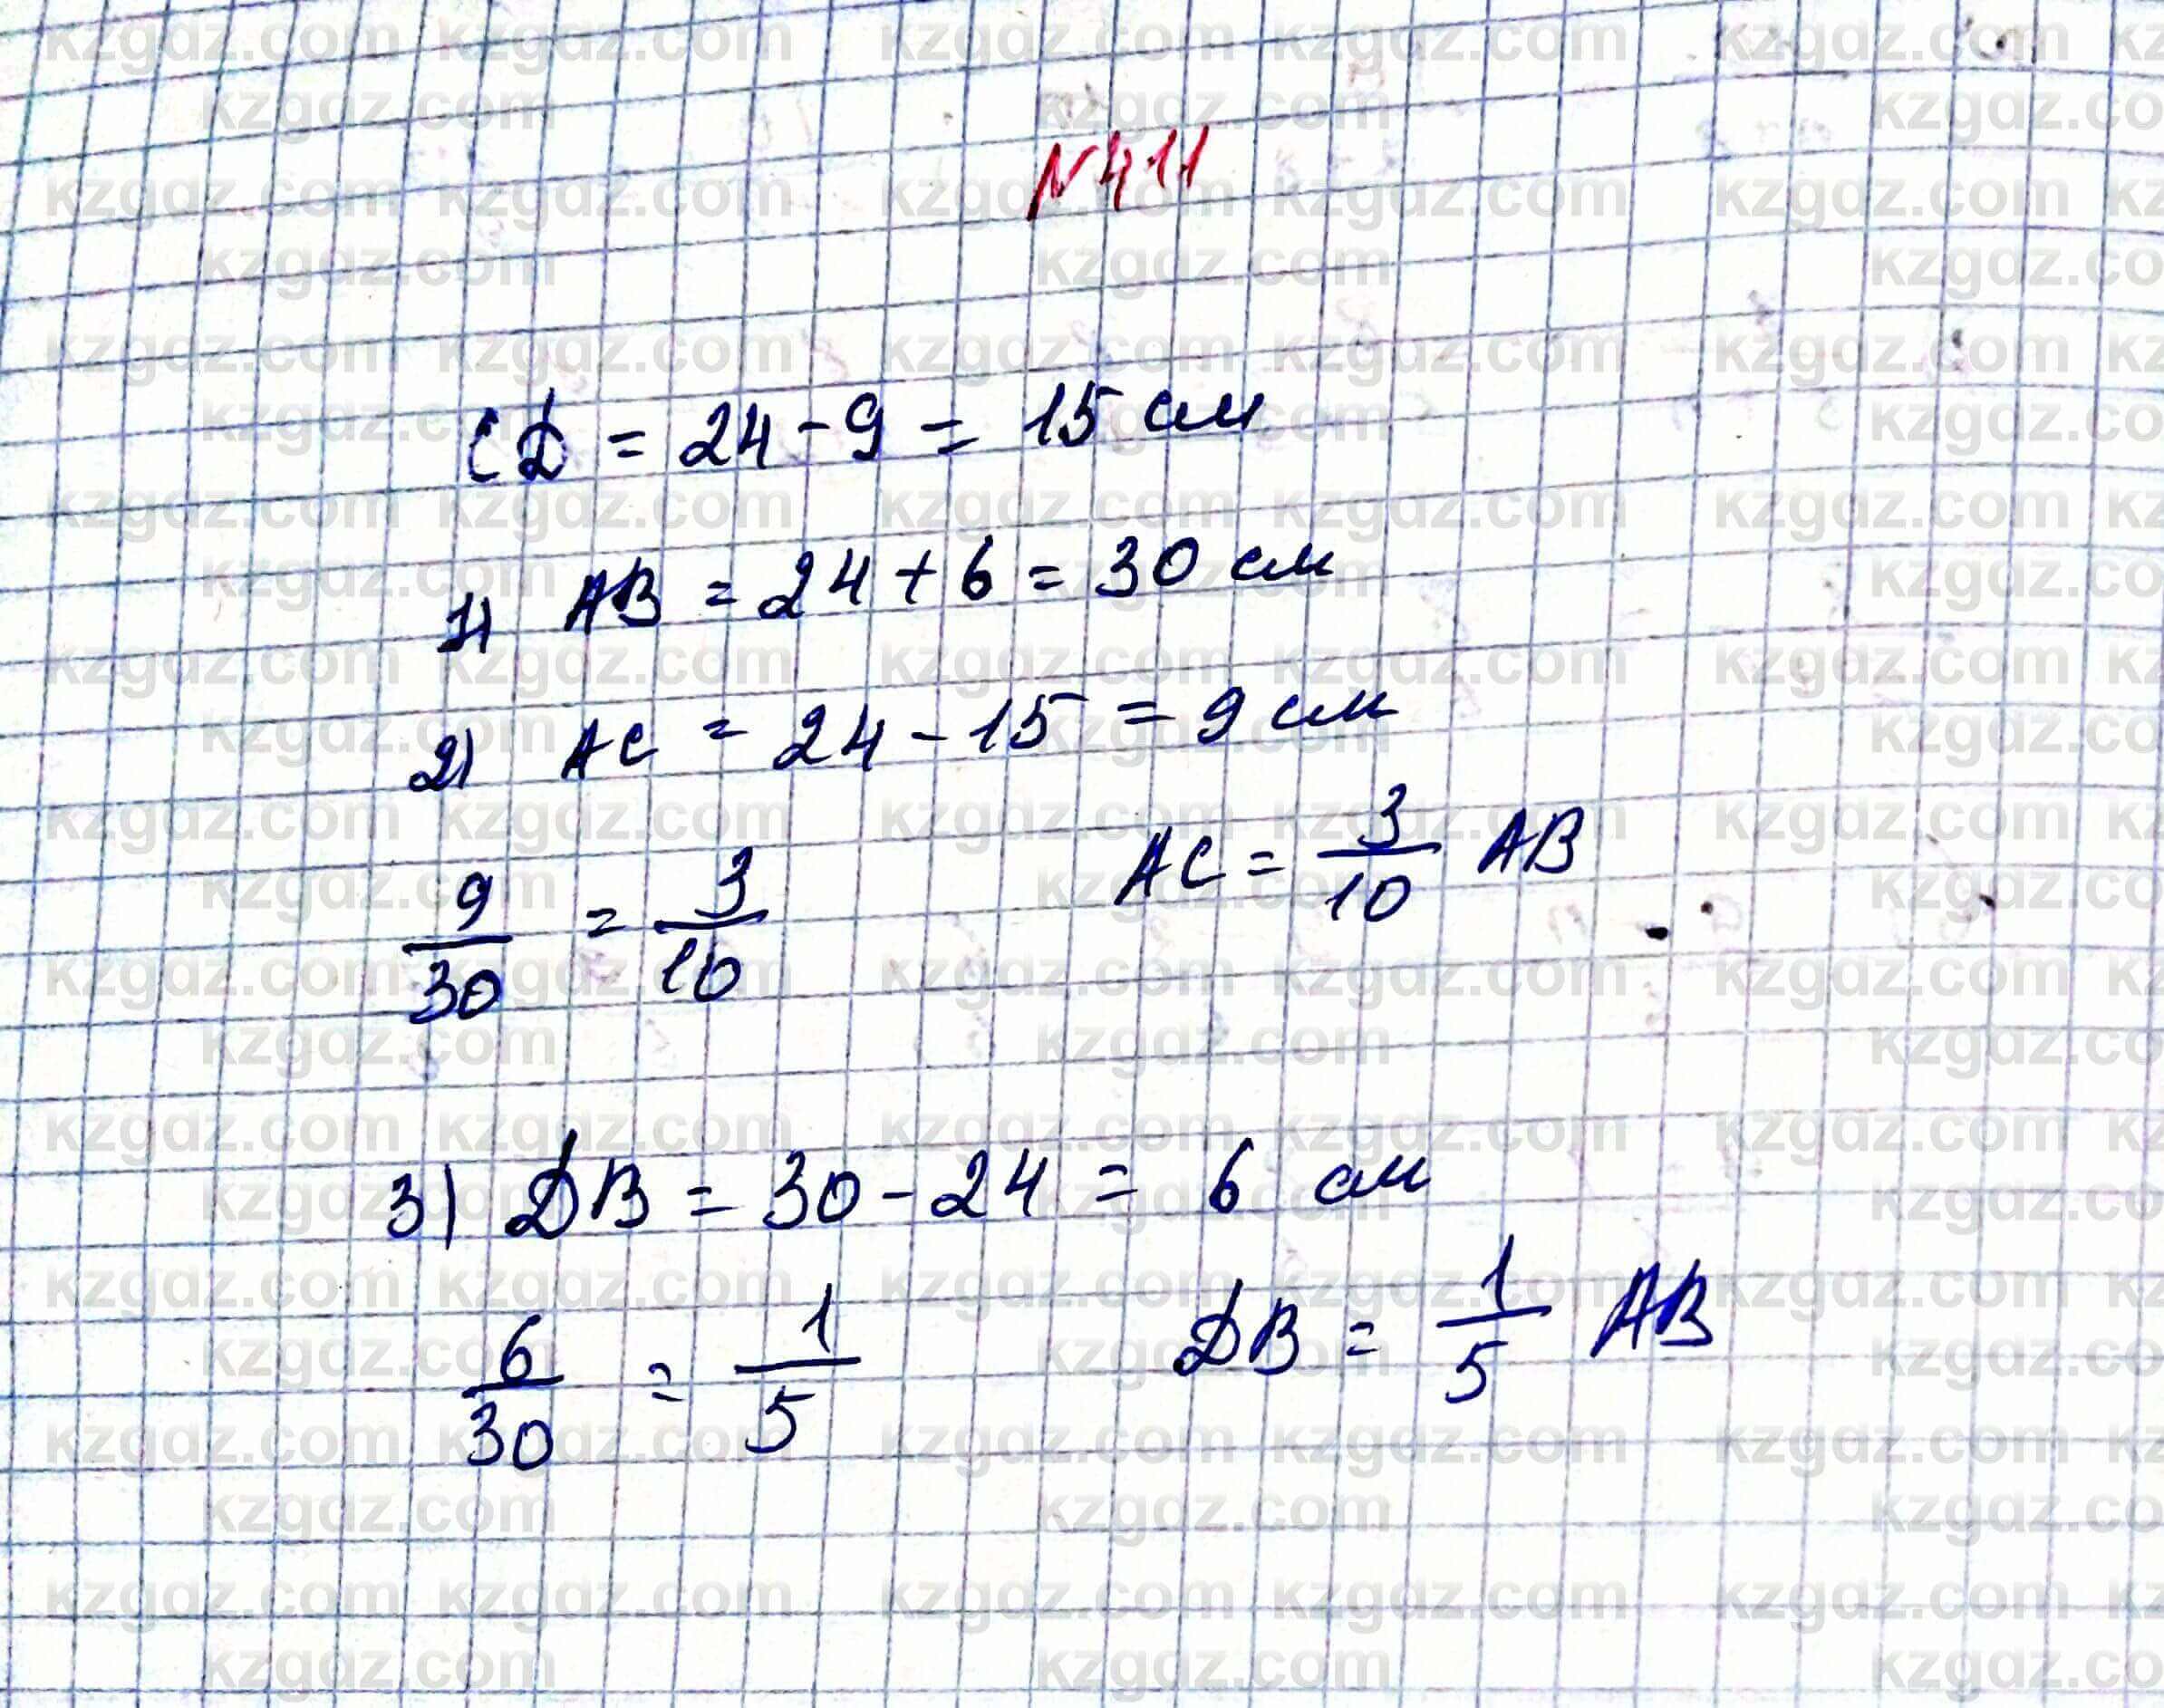 №411
CD = 24 - 9 = 15 см
1) AB = 24 + 6 = 30 см
2) AC = 24 - 15 = 9 см
9/30 = 3/10 AC = 3/10 AB
3) DB = 30 - 24 = 6 см
6/30 = 1/5 DB = 1/5 AB
kzgdz.com